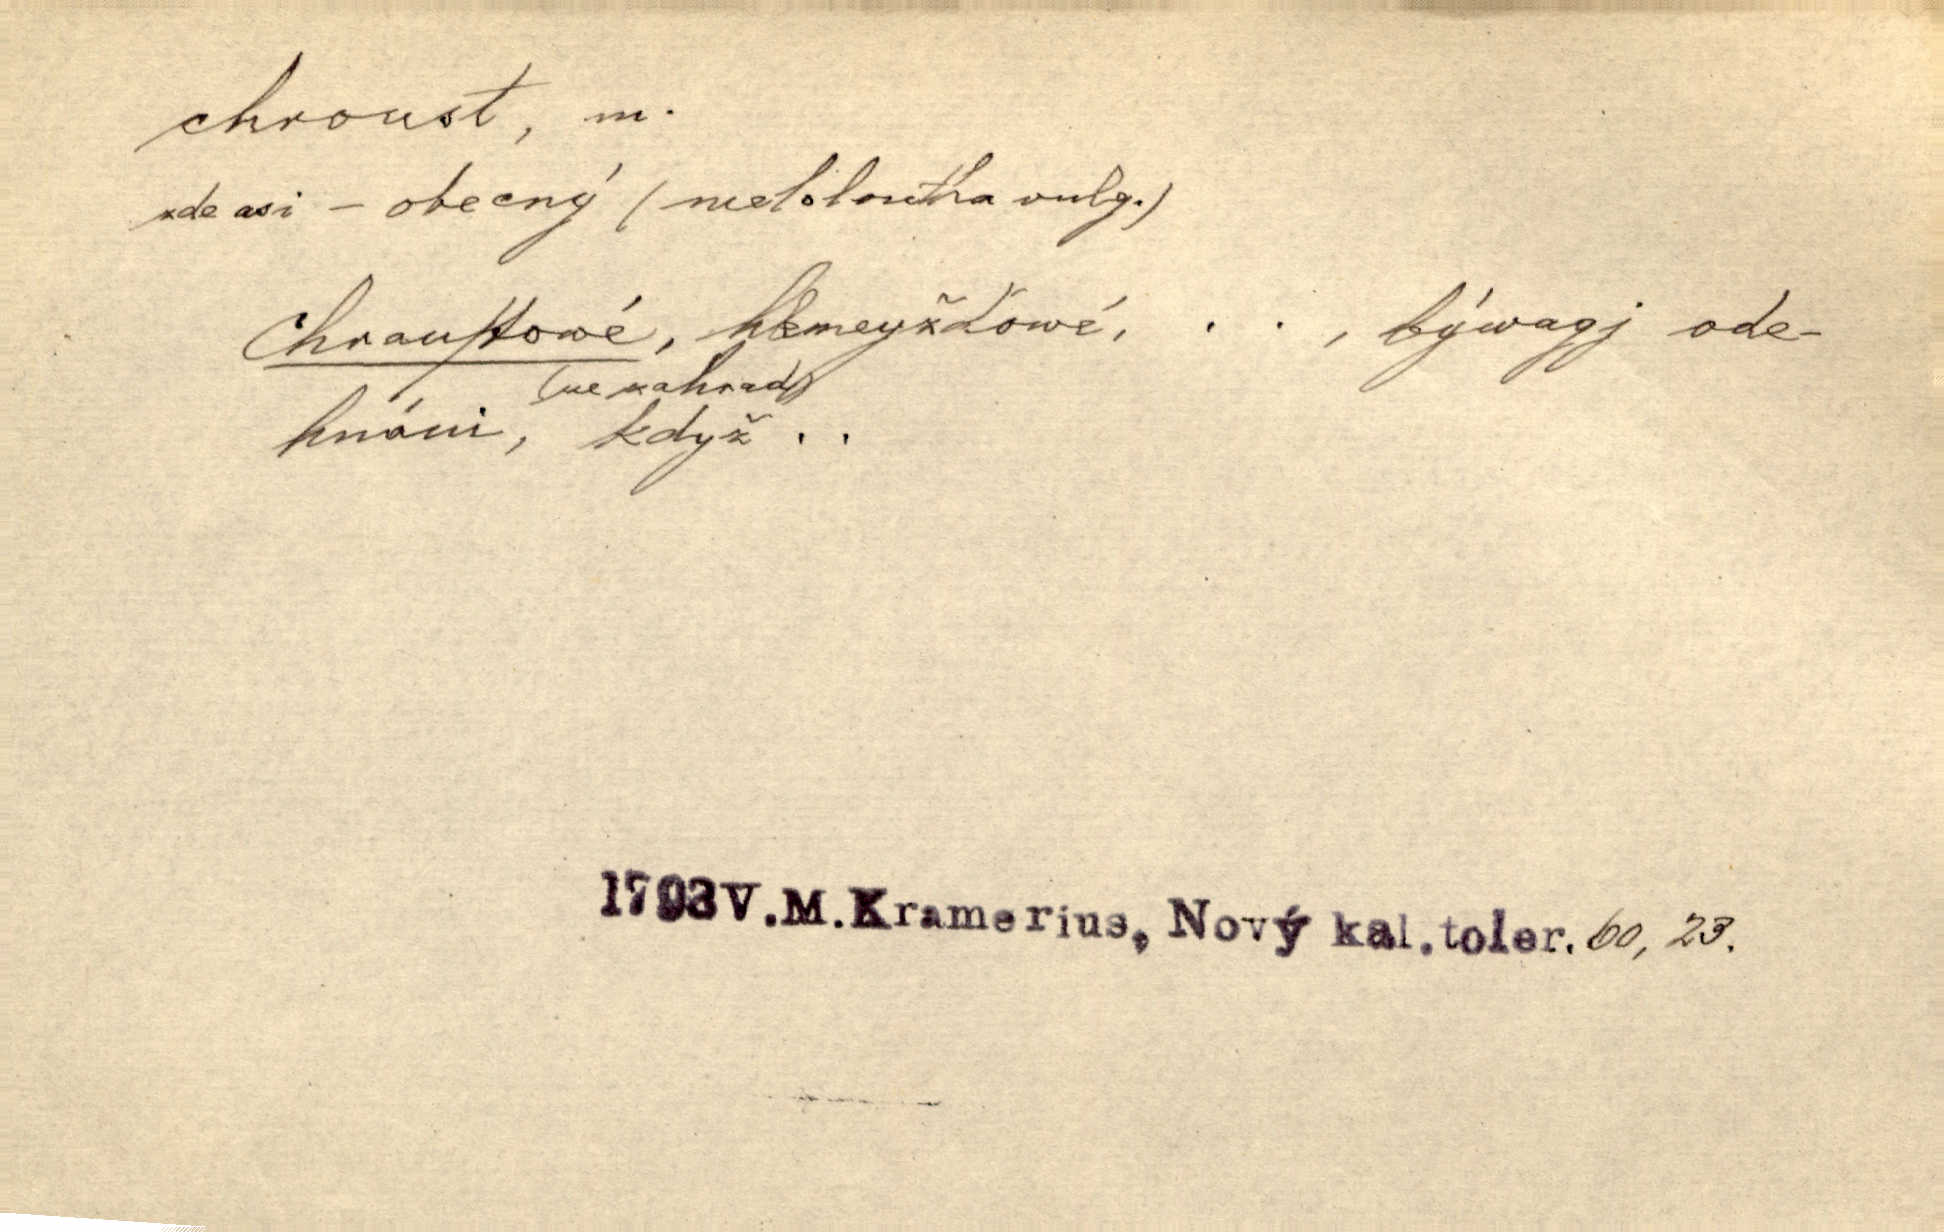 chroust, m.
zde asi – obecný (melolontha vulg.)
Chrauſtowé, hlemeyžďowé, . . , býwagj ode-
(ze zahrad)
hnáni, když . .
1793 V.M.Kramerius, Nový kal.toler. 60, 23.